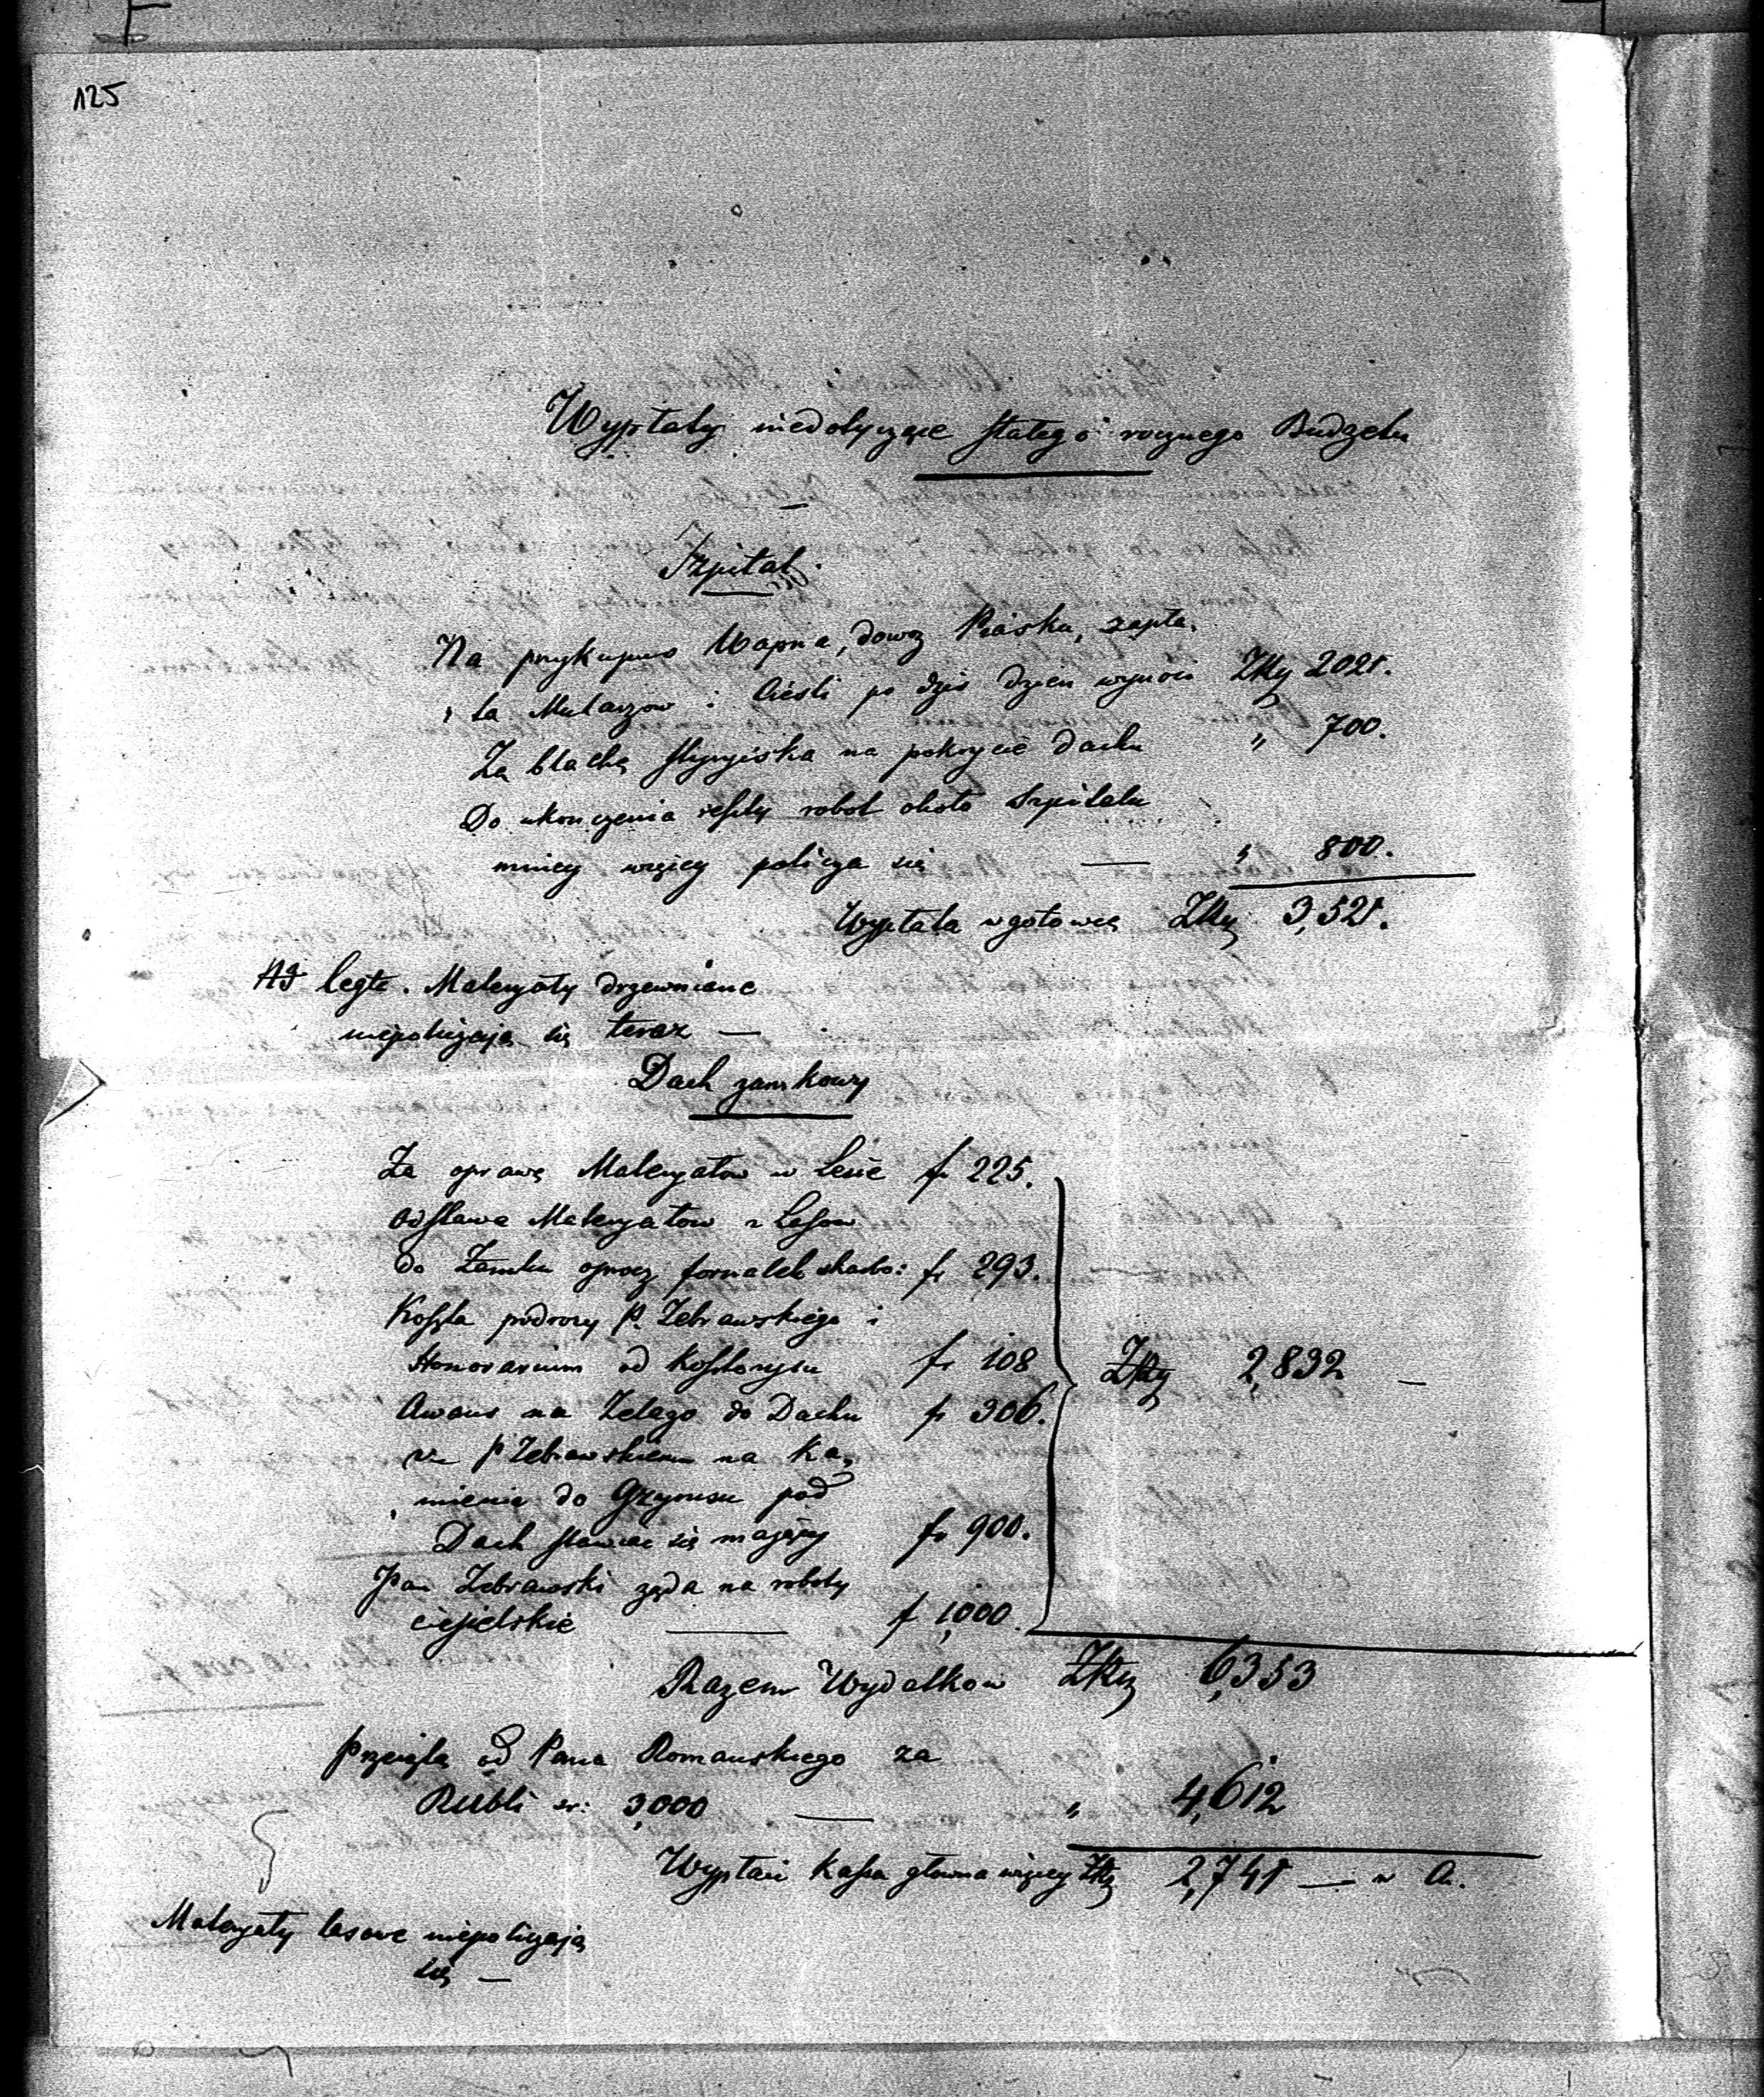 125
Wypłaty niedotyczące stałego rocznego Budżetu
Szpital.
Na przykupno Wapna, dowoz Piasku, zapła,
ta Mularzow i Cieśli po dziś dzień wynosi ZRy 2021.
Za blachę styryiską na pokrycie dachu " 700.
Do ukonczenia reszty robot około Szpitalu
mniey więcey policza się — " 800.
Wypłata w gotowce ZRy 3,521.
Cegłe. Materyały drzewniane
niepoliczają się teraz —
Dach zamkowy
Za oprawę Materyałow w Lesie fr 225.
Odstawa Materyałow z Lasow
do Zamku oprocz fornalek skarbo: fr 293.
Koszta podrozy P. Zebrawskiego i
Honorarium od Kosztorysu fr 108
Awans na Zelazo do Dachu fr 306.
P Zebrawskiemu na Ka,
mienie do Gzymsu pod
Dach stawiac się mający fr 900.
Pan Zebrawski ząda na roboty
ciesielskie — f 1,000.
ZRy 2,832 —
Razem Wydatkow ZRy 6,353
Przeszła od Pana Romanskiego za
Rubli sr: 3,000 — " 4,612
Wypłaci Kassa głowna więcey ZRy 2,741 — w A.
Materyały lasowe niepoliczają
się —